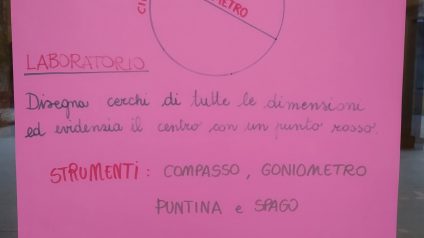 METRO
LABORATORIO
Disegna cerchi di tutte le dimensioni
ed evidenzia il centro con un punto rosso.
STRUMENTI: COMPASSO, GONIOMETRO
PUNTINA e SPAGO